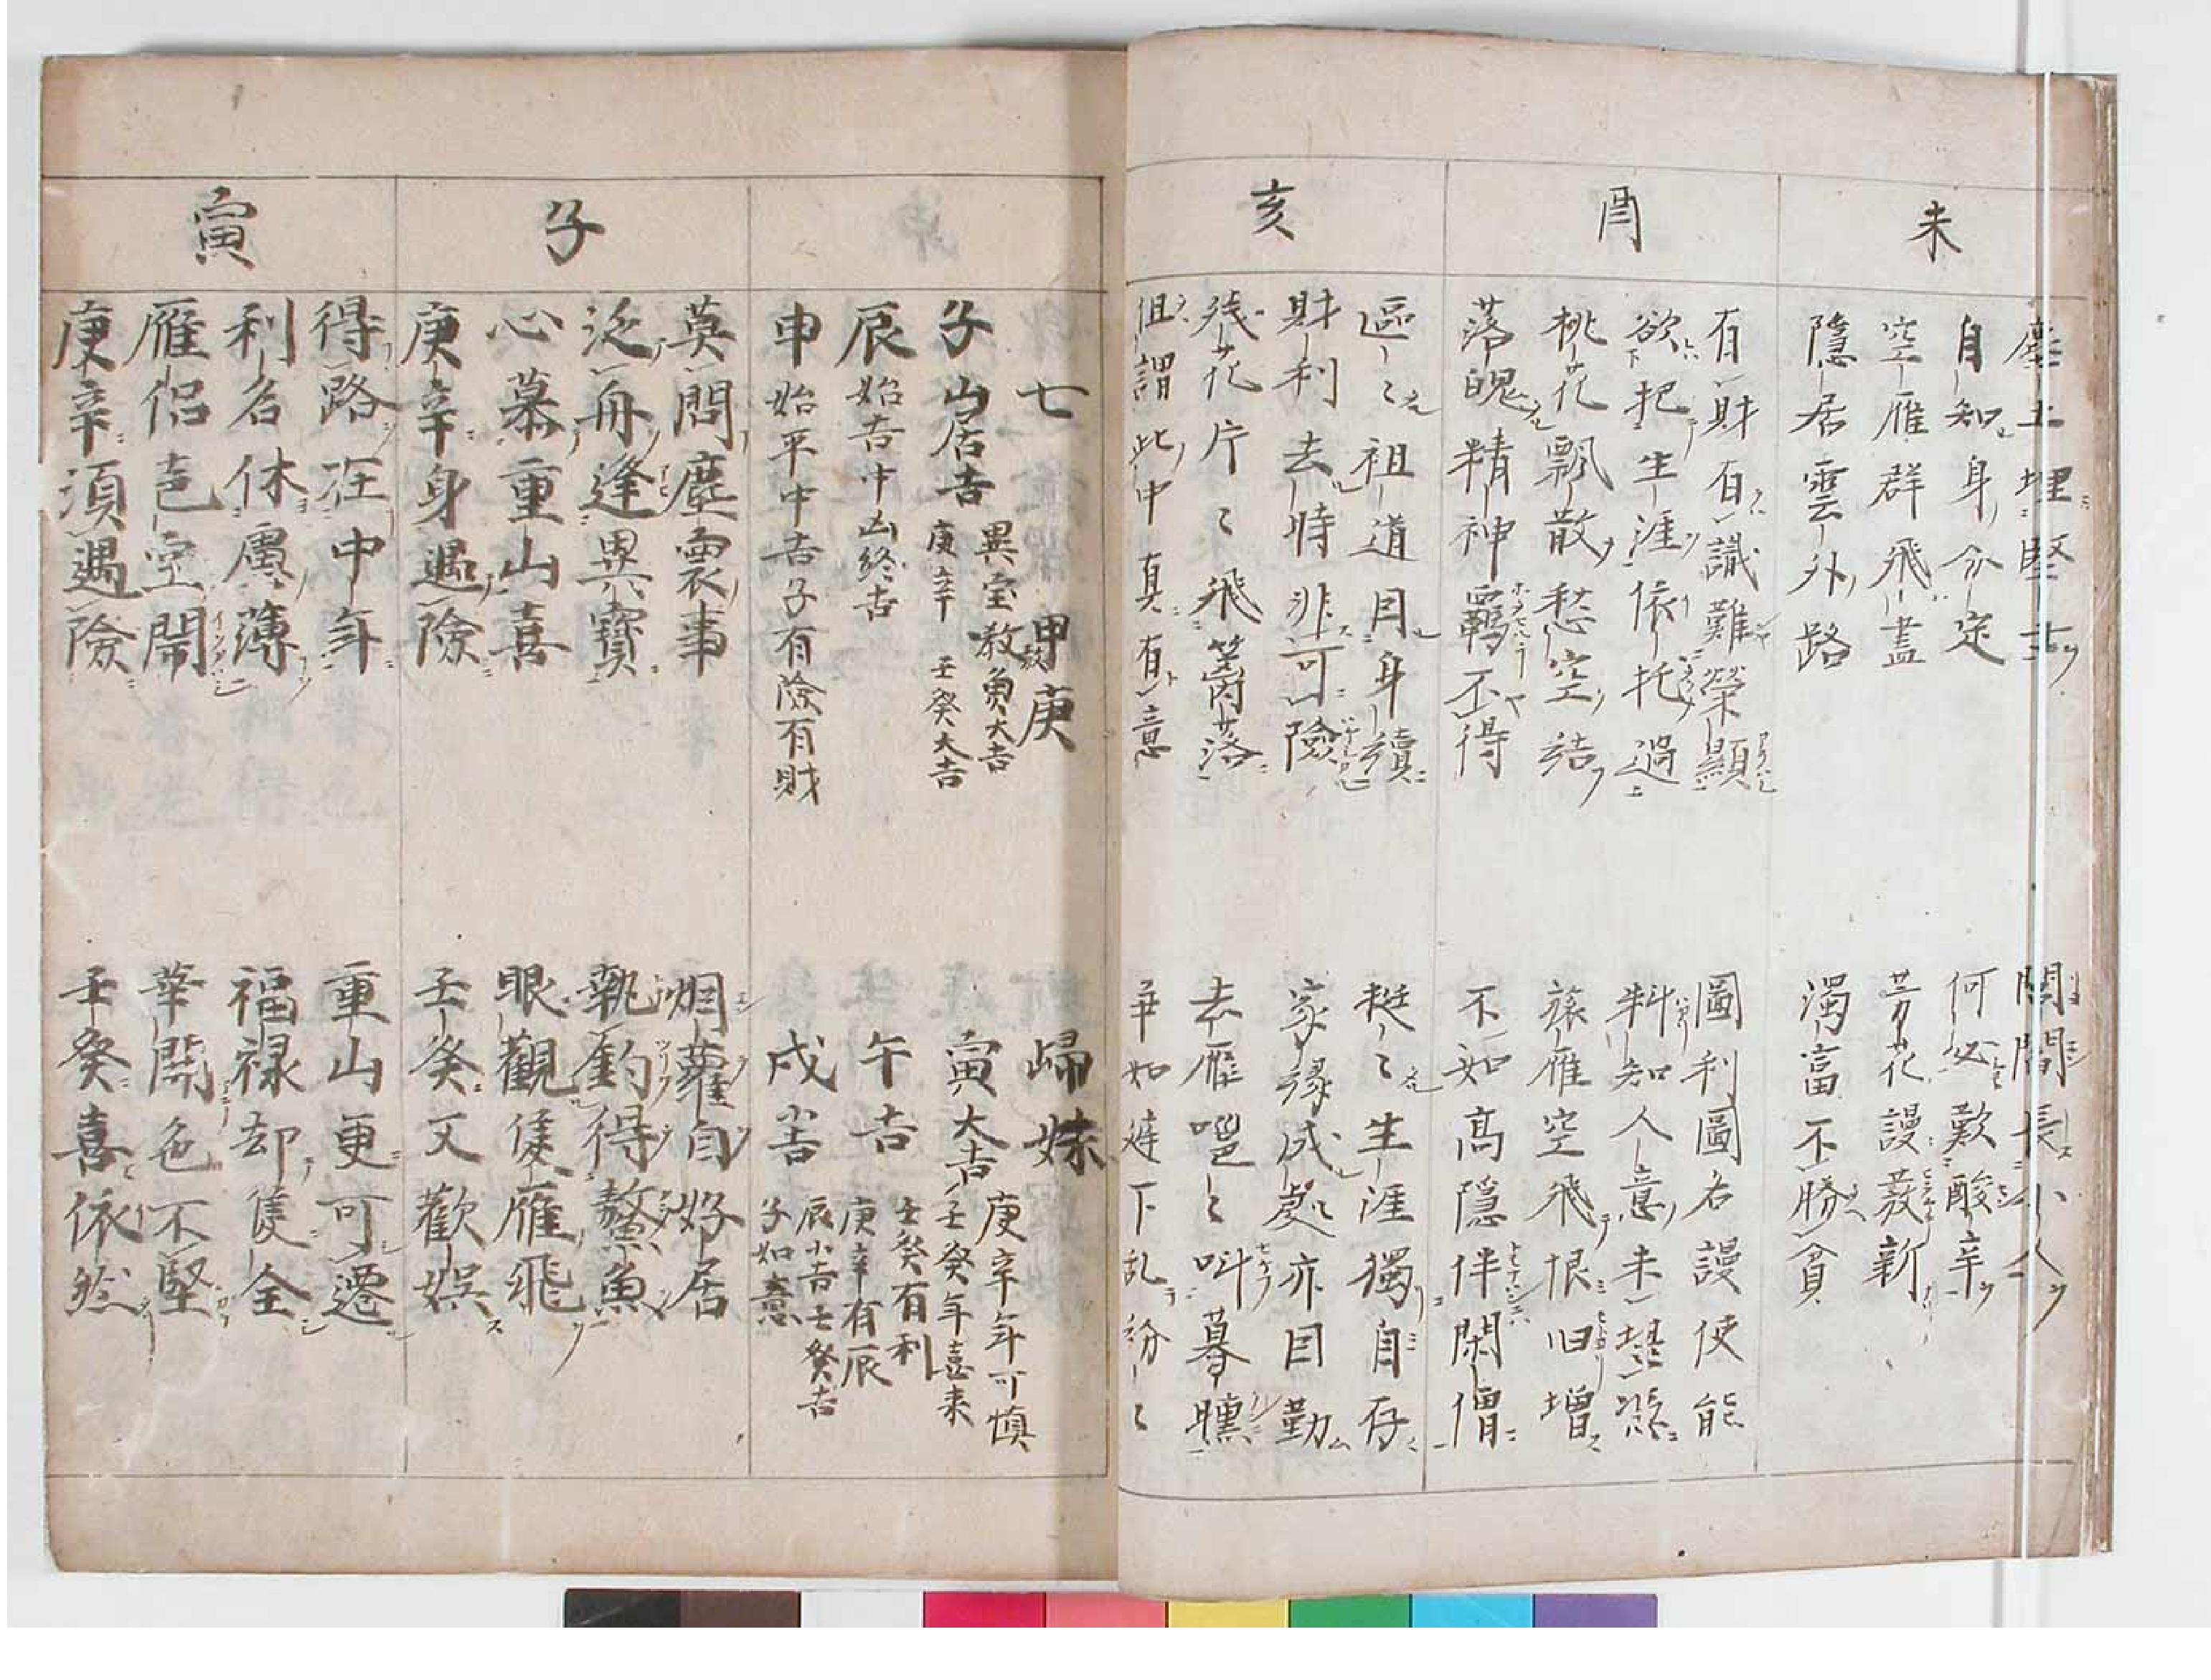 未
塵土埋堅士 閑閣長小人
自知身分定 何必歎酸辛
空雁群飛盡 芳花謾莪新
隱居雲外路 濁富不勝貧
酉
有財有識難榮顯 圖利圖名謾使能
欲把生涯依托過 料知人意未
桃花飄散愁空結 旅雁空飛恨旧増
落魄精神羈不得 不如高隠伴閑僧
亥
區〻祖道月身續 挺〻生涯獨自存
財利去時非可險 家縁成處亦目勤
残花片〻飛茵落 去雁嗈〻叫暮曛
但謂此中真有意 平如婬下乱紛〻
七 甲庚 歸妹
子 山居吉 異宝救魚大吉 庚辛 壬癸大吉
寅 大吉 庚辛年可慎 壬癸年喜来
辰 始吉中凶終吉
午 吉 壬癸有利 庚辛有辰
申 始平中吉子有險有財
戌 小吉 辰小吉壬癸吉 子如意
子
莫問塵裏事 烟蘿自好居
泛舟逢異寶 執釣得鰲魚
心慕重山喜 眼觀隻雁飛
庚辛身遇險 壬癸又歡娯
寅
得路在中年 重山更可遷
利名休厲薄 福禄却隻全
雁侶邑空閙 華開色不堅
庚辛須遇險 壬癸喜依然